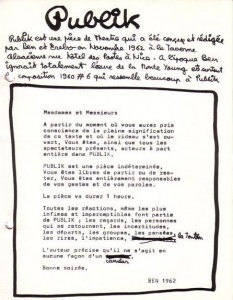 Publik
Publik est une pièce de théâtre qui a été conçue et rédigée
par Ben et Erebo en Novembre 1962 à la Taverne
Alsacienne rue hôtel des Postes à Nice. A l'époque Ben
ignorait totalement l'œuvre de la Monte Young et surtout
composition 1960 #6 qui ressemble beaucoup à Publik
Mesdames et Messieurs
A partir du moment où vous aurez pris
conscience de la pleine signification
de ce texte et où le rideau s'est ou-
vert, Vous Êtes, ainsi que tous les
spectateurs présents, acteurs à part
entière dans PUBLIK.
PUBLIK est une pièce indéterminée,
Vous Êtes libres de partir ou de res-
ter, Vous Êtes entièrement responsables
de vos gestes et de vos paroles.
Le pièce va durer 1 heure.
Toutes les réactions, même les plus
infimes et imperceptibles font partie
de PUBLIK ; les regards, les personnes
qui se retournent, les incertitudes,
les départs, les groupes, les
les rires, l'impatience,
L'auteur précise qu'il ne s'agit en
aucune façon d'un
canular
Bonne soirée.
BEN 1962